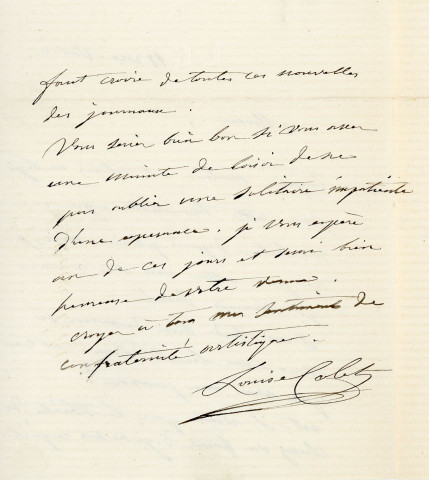 faut croire de toutes ces nouvelles
des journaux.
Vous seriez bien bon si vous avez
une minute de loisir de ne
pas oublier une solitaire impatiente
d'une esperance. je vous espère
un de ces jours et serai bien
heureuse de votre venue.
croyez à tous mes sentiments de
confraternité artistique.
Louise Colet